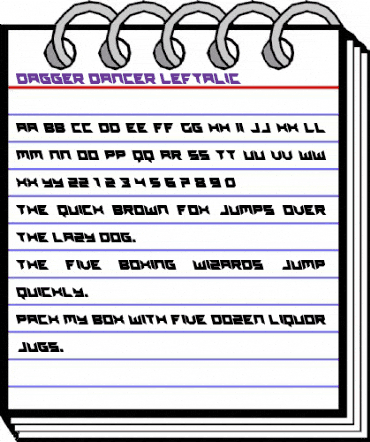 DAGGER DANCER LEFTALIC
AA BB CC DD EE FF GG HH II JJ KK LL
MM NN OO PP QQ RR SS TT UU VV WW
XX YY ZZ 1 2 3 4 5 6 7 8 9 0
THE QUICK BROWN FOX JUMPS OVER
THE LAZY DOG.
THE FIVE BOXING WIZARDS JUMP
QUICKLY.
PACK MY BOX WITH FIVE DOZEN LIQUOR
JUGS.